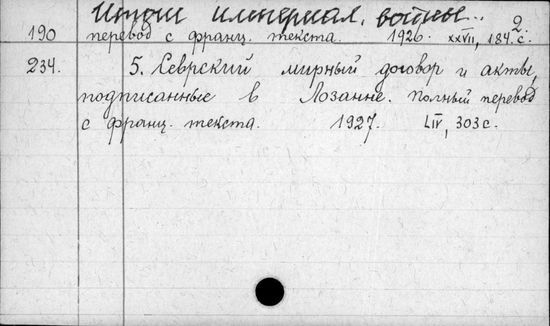 Итоги империал. войны.. 2.
190 перевод с франц. текста. 1926. XXVII, 184 с.
234. 5. Севрский мирный договор и акты,
подписанные в Лозанне. Полный перевод
с франц. текста. 1927. LIV, 303 с.